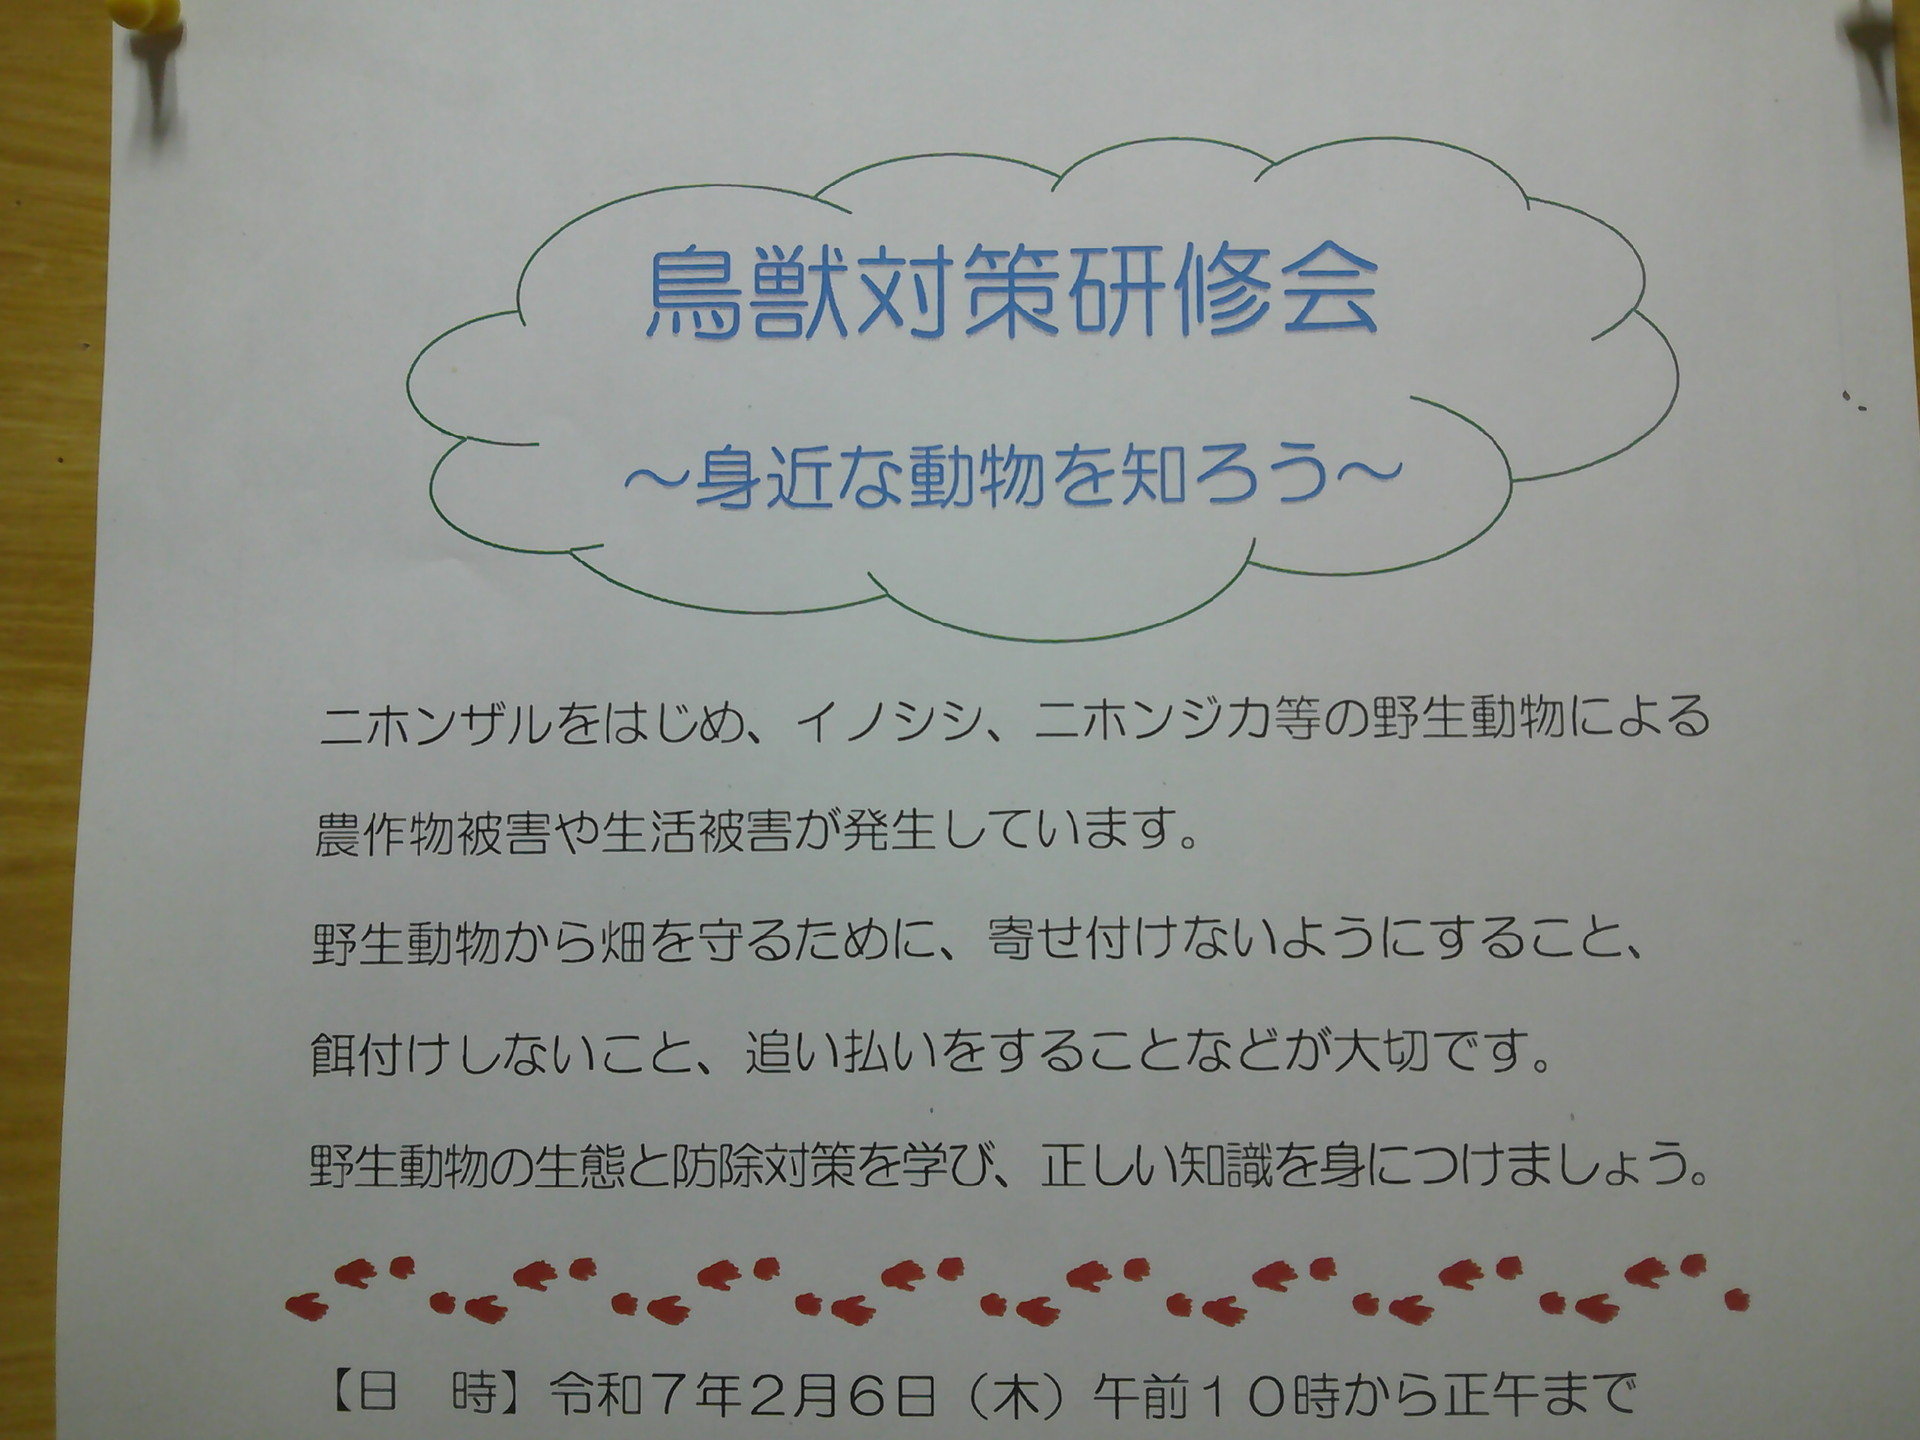 鳥獣対策研修会
～身近な動物を知ろう～
ニホンザルをはじめ、イノシシ、ニホンジカ等の野生動物による
農作物被害や生活被害が発生しています。
野生動物から畑を守るために、寄せ付けないようにすること、
餌付けしないこと、追い払いをすることなどが大切です。
野生動物の生態と防除対策を学び、正しい知識を身につけましょう。
【日　時】令和７年２月６日（木）午前１０時から正午まで